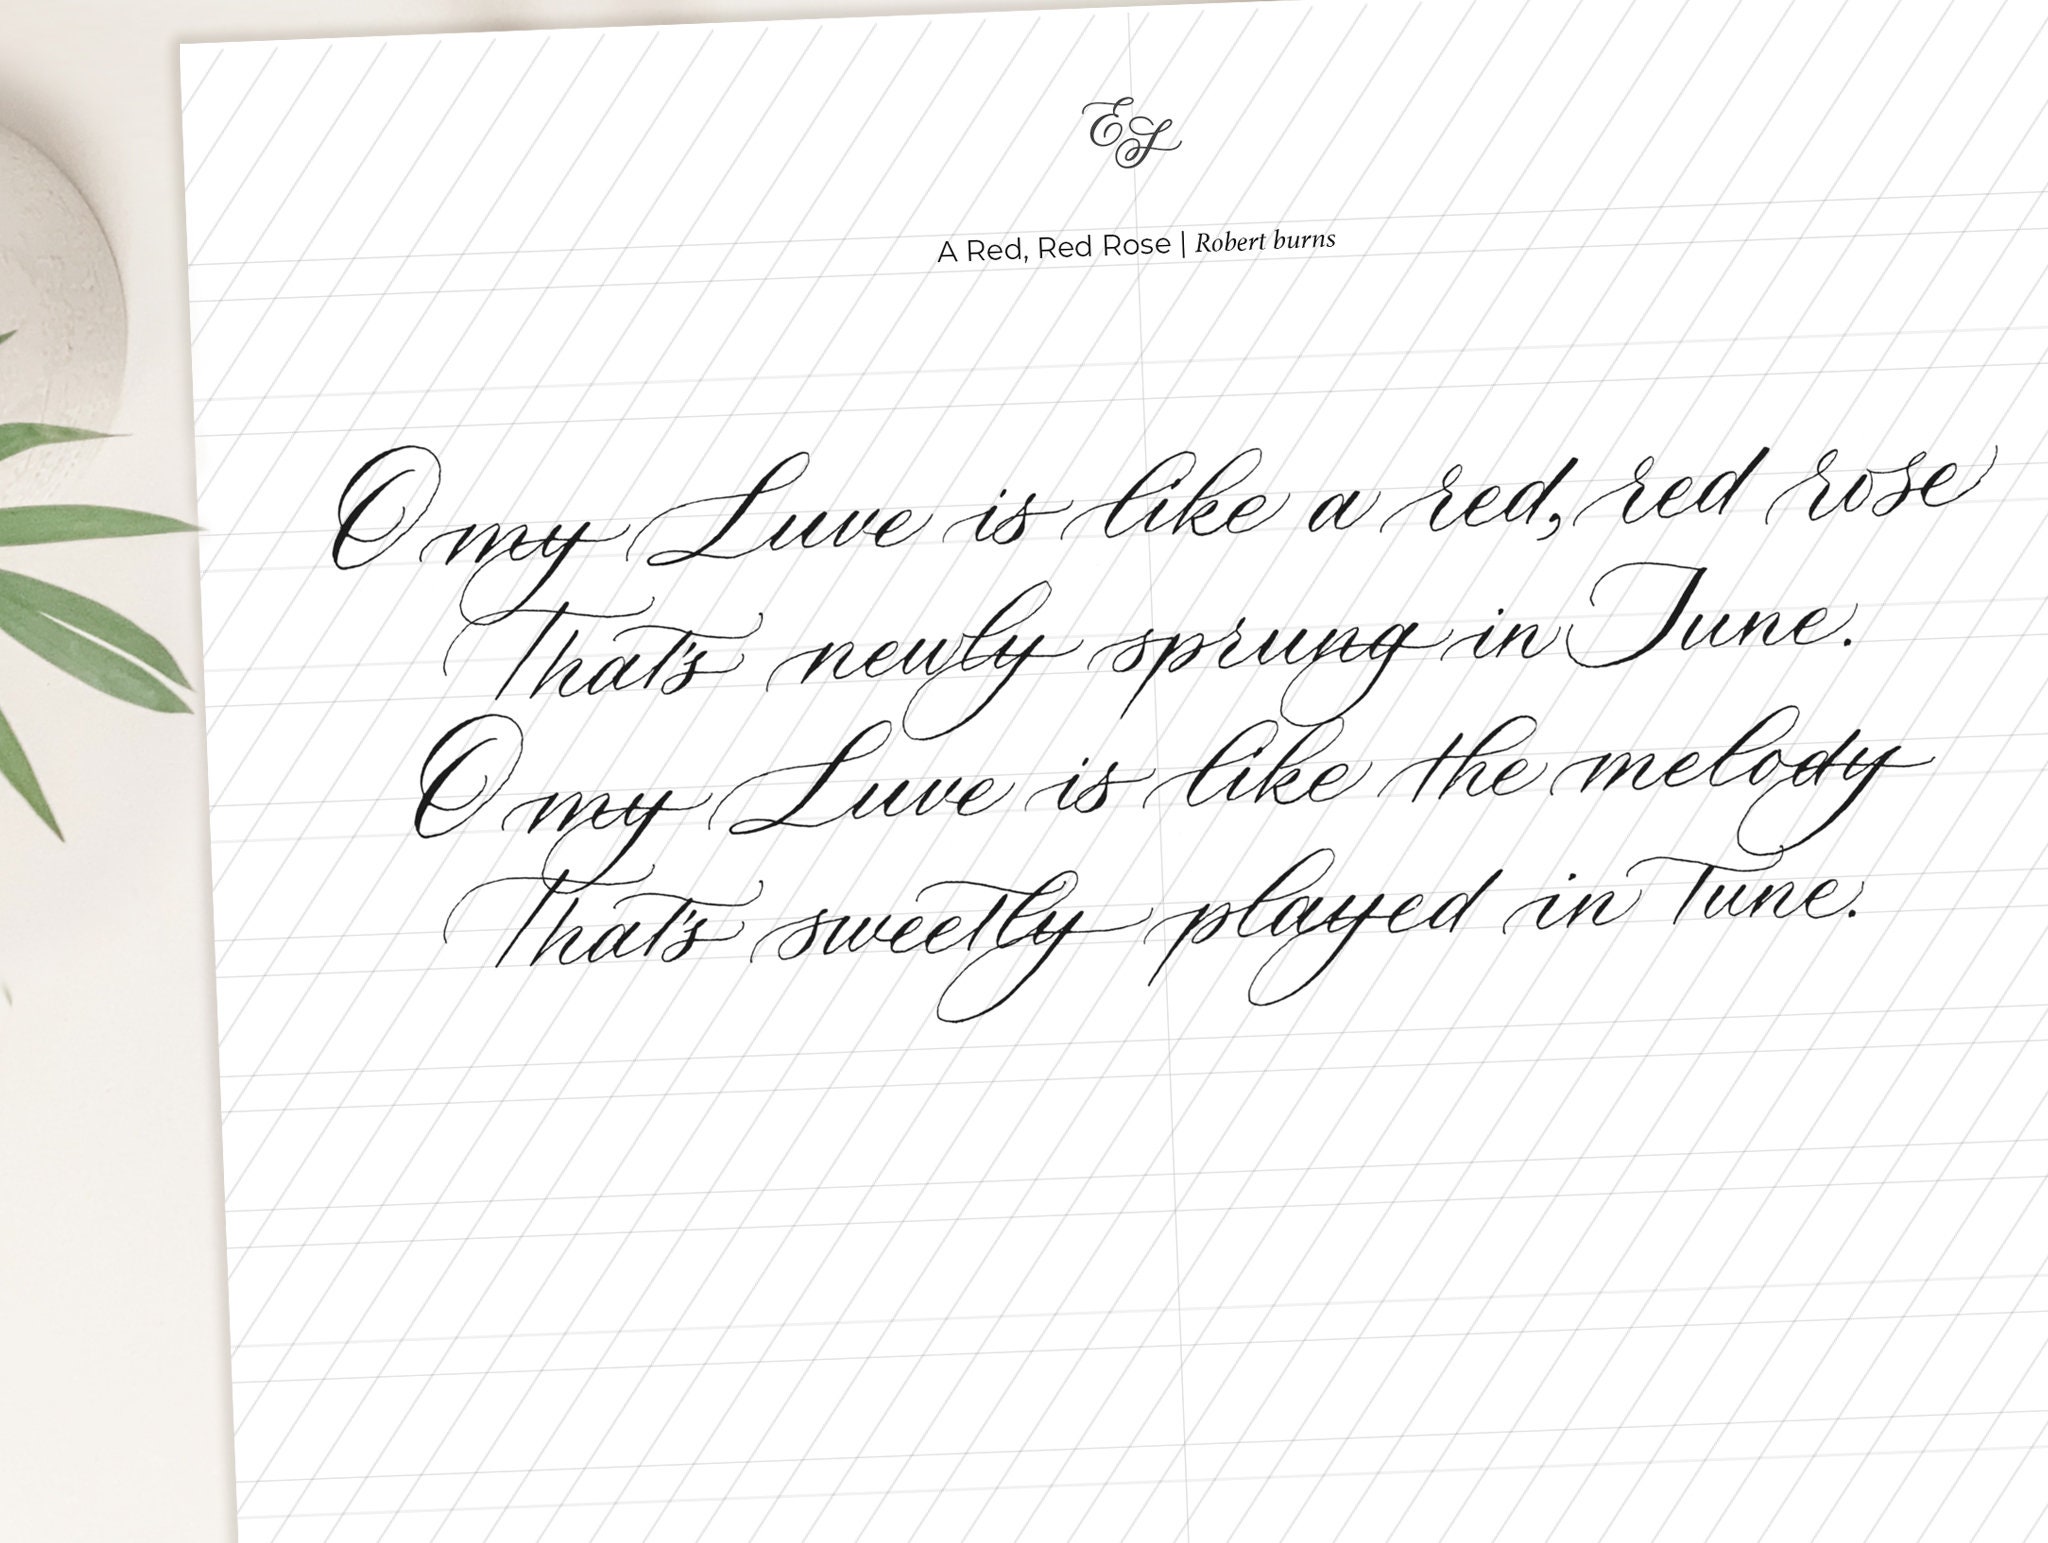 ES
A Red, Red Rose | Robert burns
O my Luve is like a red, red rose
That's newly sprung in June.
O my Luve is like the melody
That's sweetly played in Tune.